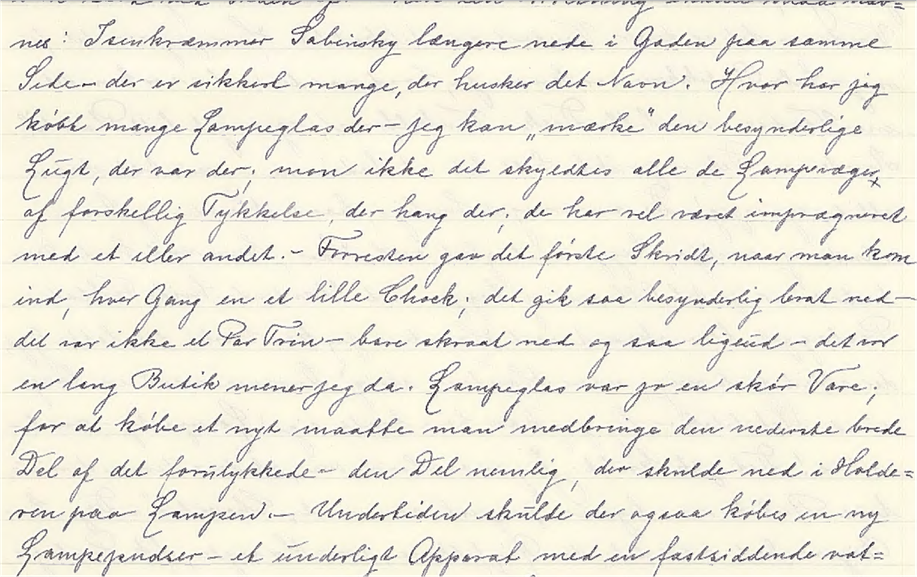 nes: Isenkræmmer Sabinsky længere nede i Gaden paa samme
Side – der er sikkert mange, der husker det Navn. Hvor har jeg
købt mange Lampeglas der – jeg kan „mærke" den besynderlige
Lugt, der var der; mon ikke det skyldtes alle de Lampevæger,
af forskellig Tykkelse, der hang der; de har vel været imprægneret
med et eller andet. – Forresten gav det første Skridt, naar man kom
ind, hver Gang en et lille Chock; det gik saa besynderlig brat ned –
det var ikke et Par Trin – bare skraat ned og saa ligeud – det var
en lang Butik mener jeg da. Lampeglas var jo en skør Vare;
for at købe et nyt maatte man medbringe den nederste brede
Del af det forulykkede – den Del nemlig, der skulde ned i Holde=
ren paa Lampen. – Undertiden skulde der ogsaa købes en ny
Lampepudser – et underligt Apparat med en fastsiddende vat=